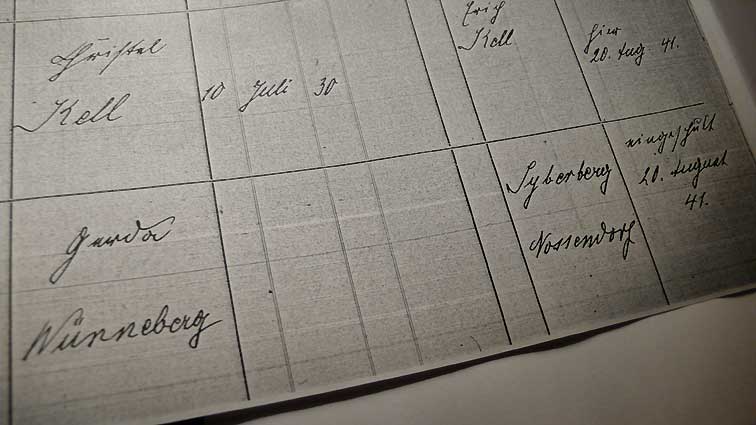 Christel
Kell
10 Juli 30
Erich
Kell
hier
20. Aug 41.
Gerda
Wünneberg
Syberberg
Nossendorf
eingeschult
20. August
41.